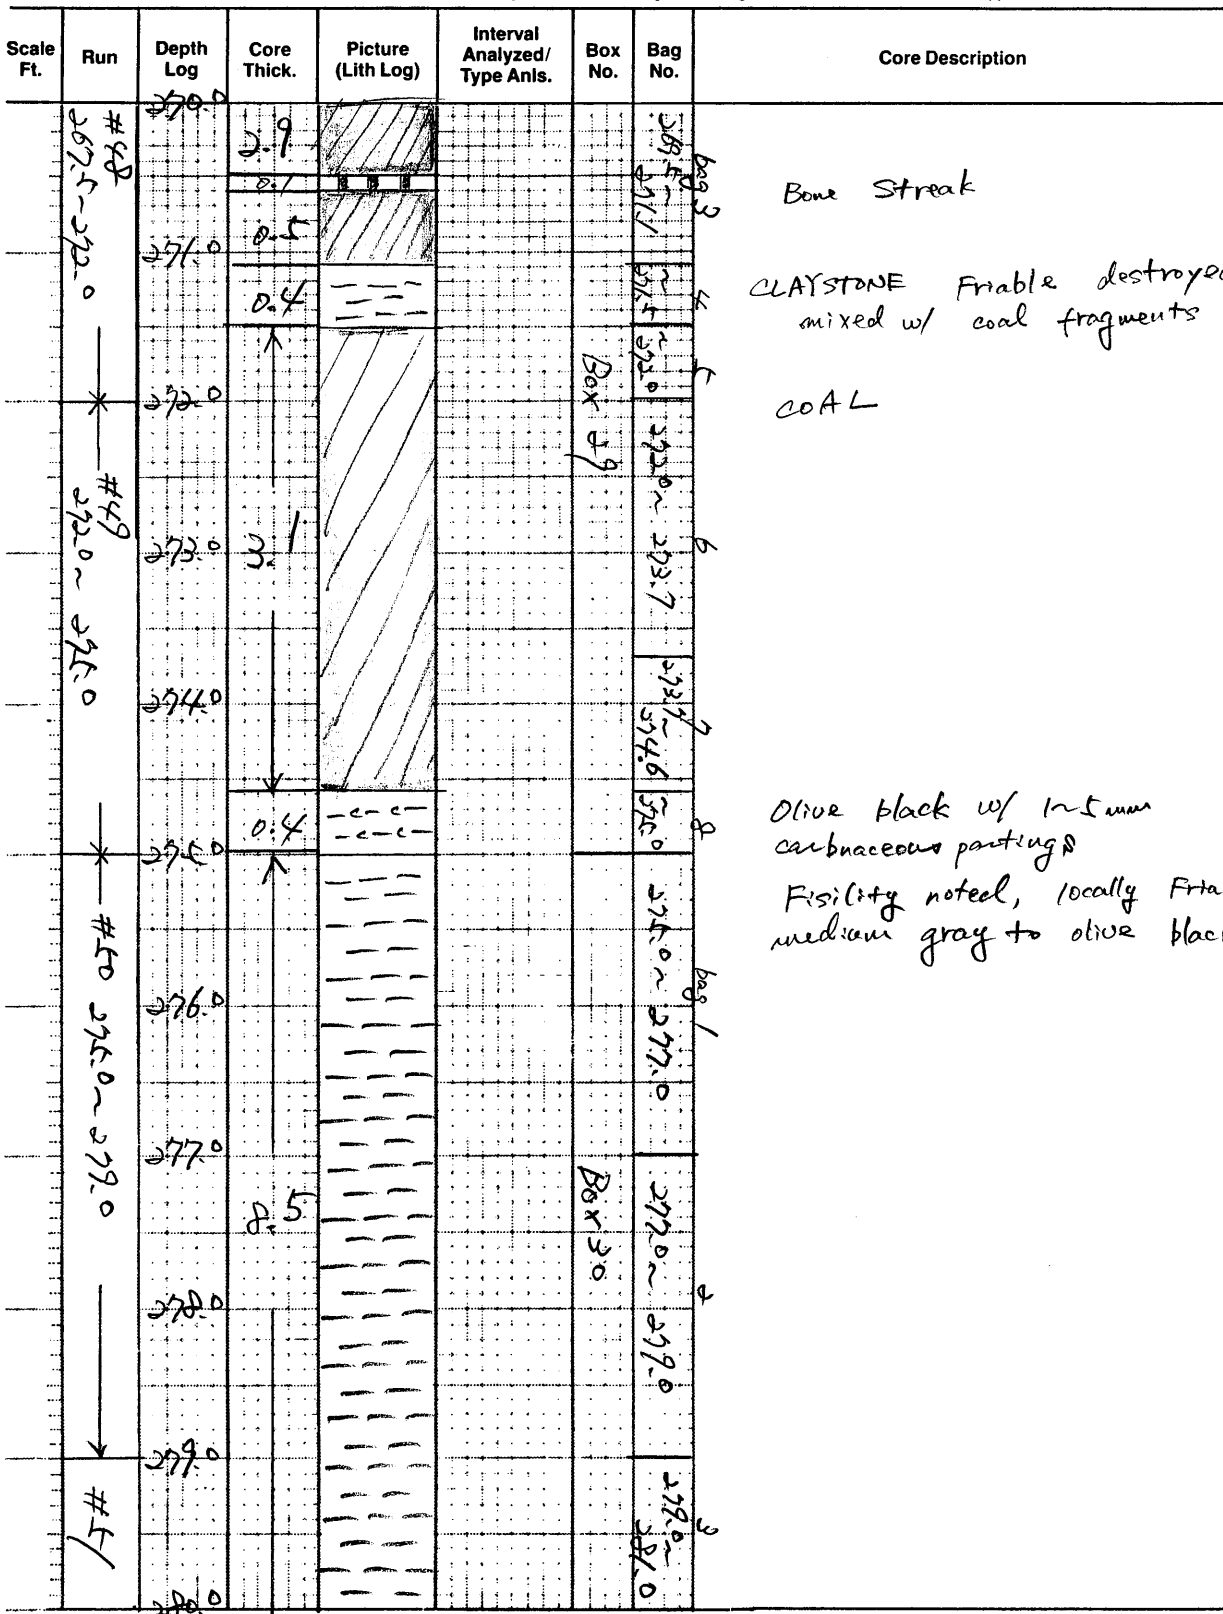 Scale Ft.
Run
Depth Log
Core Thick.
Picture (Lith Log)
Interval Analyzed/ Type Anls.
Box No.
Bag No.
Core Description
#48
267.5~272.0
#49
272.0~275.0
#50 275.0~279.0
#51
270.0
271.0
272.0
273.0
274.0
275.0
276.0
277.0
278.0
279.0
280.0
2.9
0.1
0.5
0.4
3.1
0.4
8.5
-c-c-
-c-c-
Box 29
Box 30
bag 3
271.1
4
~271.5
5
~272.0
6
272.0~273.7
7
273.7~
274.6
8
~275.0
bag 1
275.0~277.0
2
277.0~279.0
3
279.0~
281.0
Bone Streak
CLAYSTONE Friable destroyed
mixed w/ coal fragments
COAL
Olive black w/ 1~5mm
carbnaceous partings
Fisility noted, locally Fria
medium gray to olive blac